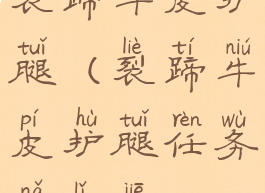 裂蹄牛皮护
tuǐ liè tí niú
腿（裂蹄牛
pí hù tuǐ rèn wù
皮护腿任务
nǎ lǐ jiē